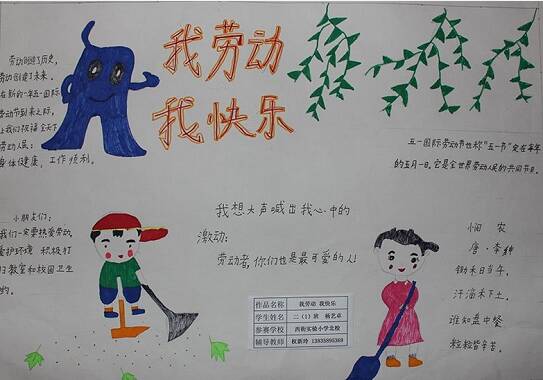 我劳动
我快乐
劳动创造了历史,
劳动创造了未来。
在新的一年五一国际
劳动节到来之际,
让我们祝福全天下
劳动人民:
身体健康、工作顺利。
五一国际劳动节也称"五一节"定在每年
的五月一日。它是全世界劳动人民的共同节日。
小朋友们:
我们一定要热爱劳动,
爱护环境 积极打
扫教室和校园卫生
的。
我想大声喊出我心中的
激动:
劳动者,你们也是最可爱的人!
悯 农
唐·李绅
锄禾日当午,
汗滴禾下土。
谁知盘中餐
粒粒皆辛苦。
作品名称 我劳动 我快乐
学生姓名 二(1)班 杨艺卓
参赛学校 西街实验小学北校
辅导教师 权新玲 13835895369